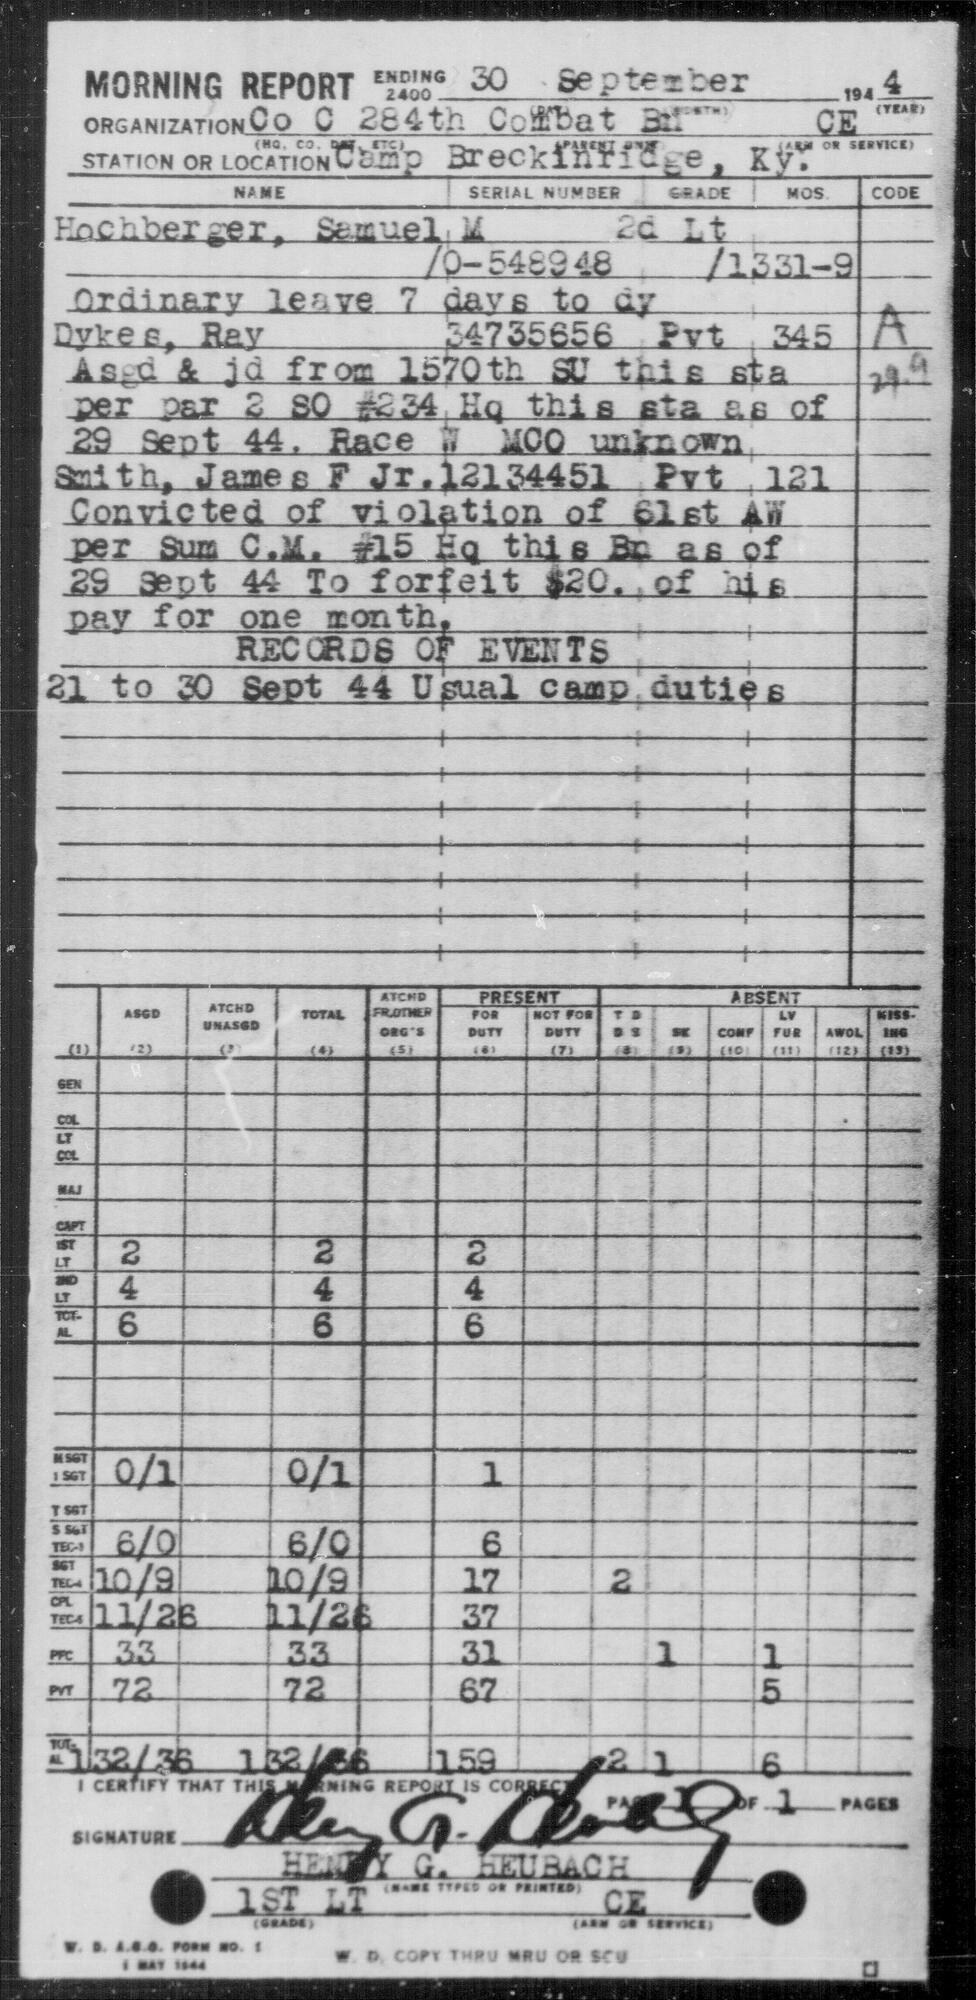 MORNING REPORT ENDING 2400 30 September 1944
(DAY) (MONTH) (YEAR)
ORGANIZATION Co C 284th Combat Bn CE
(HQ, CO, DET, ETC) (PARENT UNIT) (ARM OR SERVICE)
STATION OR LOCATION Camp Breckinridge, Ky.
NAME SERIAL NUMBER GRADE MOS. CODE
Hochberger, Samuel M 2d Lt
/O-548948 /1331-9
Ordinary leave 7 days to dy
Dykes, Ray 34735656 Pvt 345 A
Asgd & jd from 1570th SU this sta 29.9
per par 2 SO #234 Hq this sta as of
29 Sept 44. Race W MCO unknown
Smith, James F Jr. 12134451 Pvt 121
Convicted of violation of 61st AW
per Sum C.M. #15 Hq this Bn as of
29 Sept 44 To forfeit $20. of his
pay for one month.
RECORDS OF EVENTS
21 to 30 Sept 44 Usual camp duties
ASGD ATCHD UNASGD TOTAL ATCHD FR.OTHER ORG'S PRESENT FOR DUTY NOT FOR DUTY ABSENT T D D S SK CONF LV FUR AWOL MISS-ING
(1) (2) (3) (4) (5) (6) (7) (8) (9) (10) (11) (12) (13)
GEN
COL
LT COL
MAJ
CAPT
1ST LT 2 2 2
2ND LT 4 4 4
TOT-AL 6 6 6
M SGT 1 SGT 0/1 0/1 1
T SGT
S SGT TEC-3 6/0 6/0 6
SGT TEC-4 10/9 10/9 17 2
CPL TEC-5 11/26 11/26 37
PFC 33 33 31 1 1
PVT 72 72 67 5
TOT-AL 132/36 132/36 159 2 1 6
I CERTIFY THAT THIS MORNING REPORT IS CORRECT
PAGE 1 OF 1 PAGES
SIGNATURE Henry G. Heubach
HENRY G. HEUBACH
(NAME TYPED OR PRINTED)
1ST LT CE
(GRADE) (ARM OR SERVICE)
W. D. A.G.O. FORM NO. 1
1 MAY 1944
W. D. COPY THRU MRU OR SCU